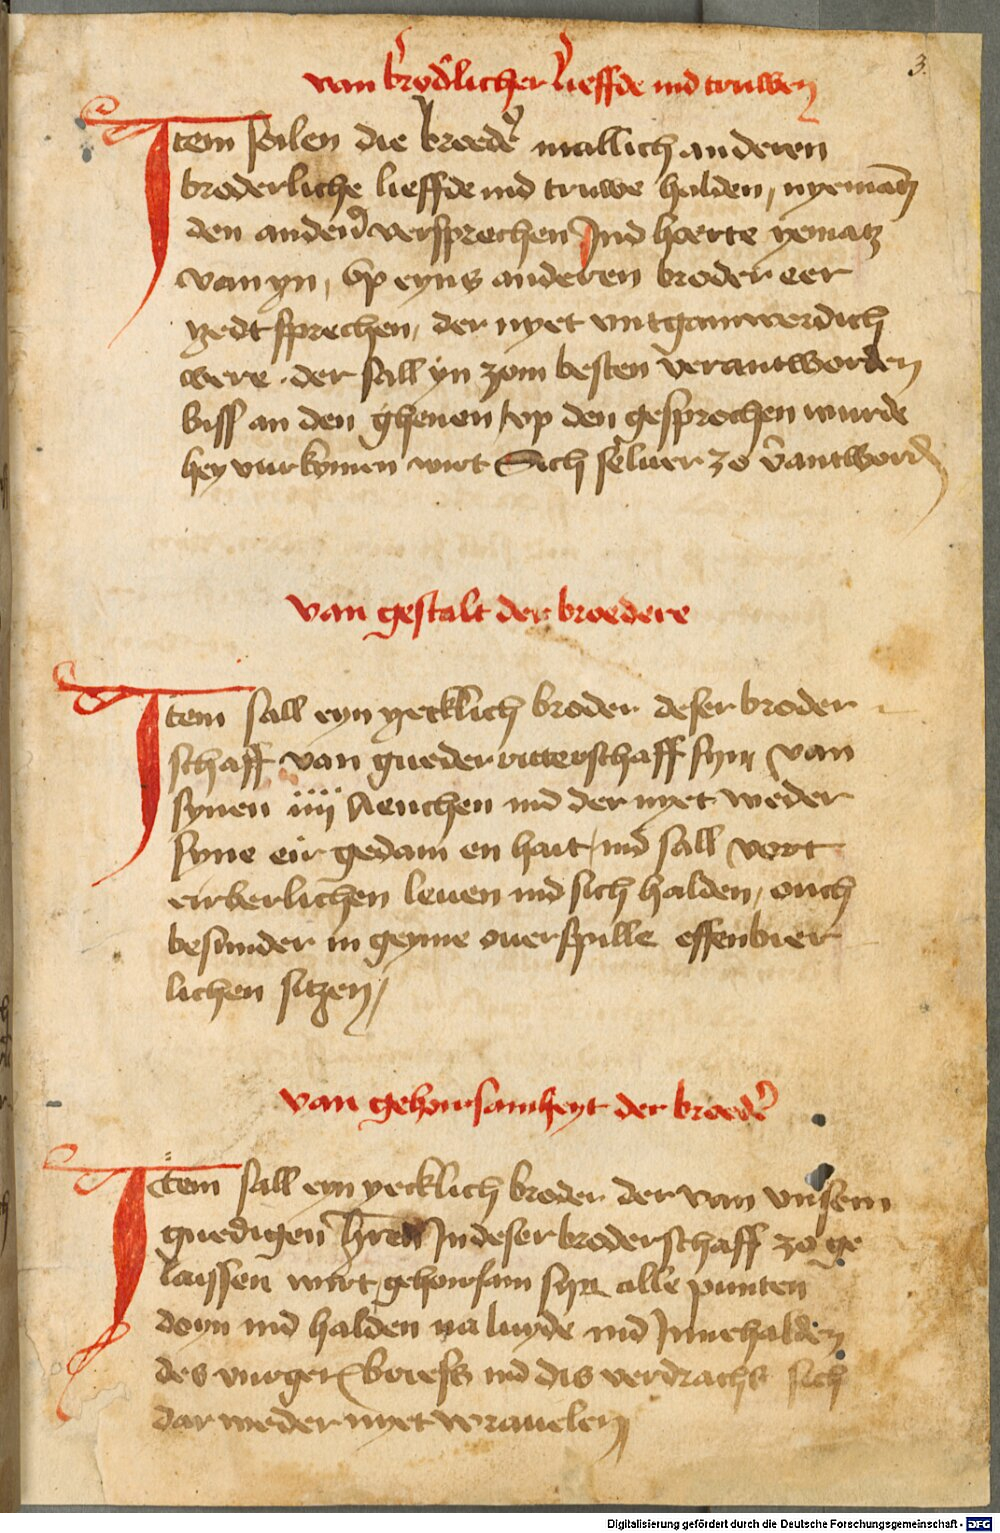 3.
van brod'licher lieffde ind truwen
Item seilen die breed' mallich anderen
broderliche lieffde ind truwe halden, nyeman
den ander' versprechen Ind hoerte yematz
van yn, up eyns anderen broder eer
yedt sprechen, der nyet intganwerdich
were. der sall yn zom besten verantworden
biss an den ghenen, vp den gesprochen wurde
hey vurkomen wirt Sich seluer zo v'antword
van gestalt der broedere
Item sall eyn yecklich broder deser broder
schaff van gueder ritterschaff syn, van
synen iiij Aenchen ind der nyet weder
syne eir gedain en hait, ind sall vort
eirberlichen leuen ind sich halden, ouch
besunder in geyme ouerspille effenbier
lichen sitzen,
van gehoursamheyt der broed'
Item sall eyn yecklich broder der van unsem
gnedigen hren In deser broderschaff zo ge
laissen wirt, gehoirsam syn alle punten
doyn ind halden na luyde ind Innehalden
des vurger. briefs ind dis verdrachs sich
dar weder nyet wrauelen
Digitalisierung gefördert durch die Deutsche Forschungsgemeinschaft - DFG